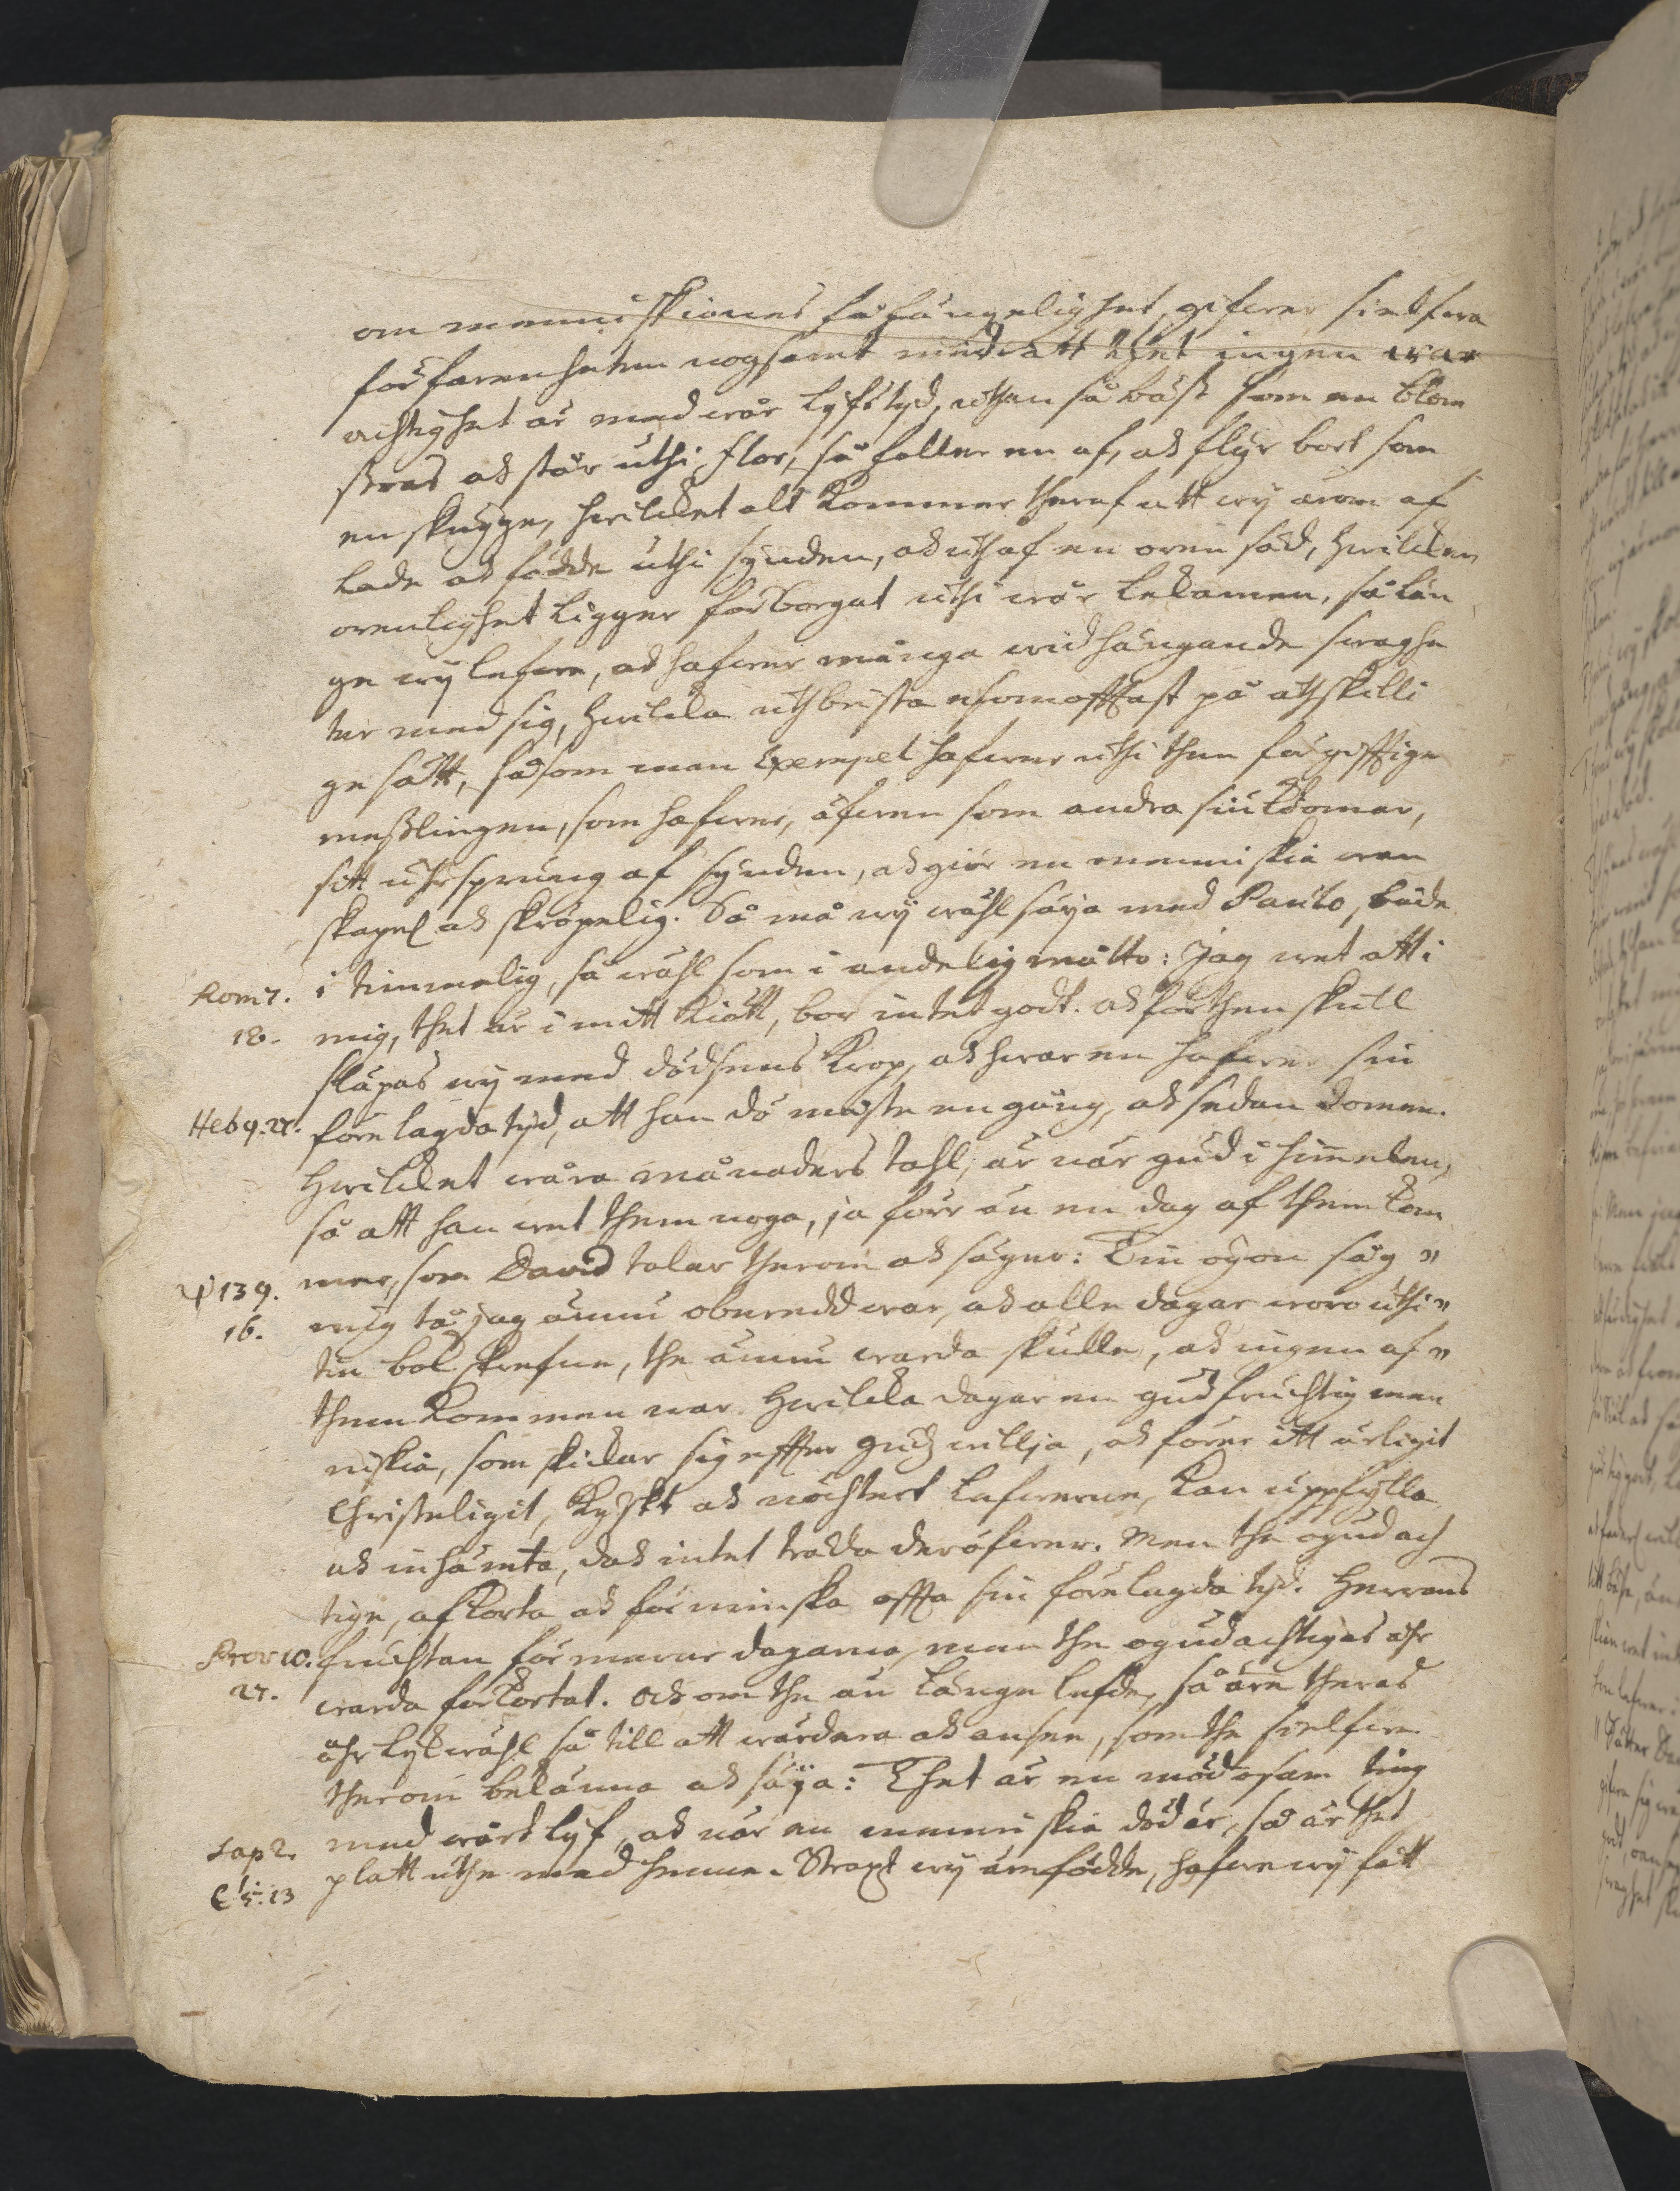 om menniskiones fåfängelighet, gifwer sielfwa
förfarenheten nogsamt widh att thet ingen war
achtighet är med wår lyfstyd, uthan så bäst som en blom
stras ock står uthi flor, så faller en af, ock flyr bort som
en skugge, hwilcket alt kommer theraf att wy ärom af
lade ock födde uthi synden, ock uthaf en oren säd, hwilcken
orenlighet ligger förborgat uthi wår lekamen, så län
ge wy lefwe, ock hafwer många widhängande swaghe
ter med sig, hwilcka uthbrista esomofftast på åthskilli
ge sätt, såsom man Exempel hafwer uthi then förgifftige
messlingen, som hafwer, äfwen som andra siukdomar,
sitt uhrsprung af synden, ock giör en menniskia wan
skapel. ock skröpelig. Så må wy wähl säya med Paulo, både
Rom 7. i timmelig, så wähl som i andelig måtto: Jag wet att i
18. mig, thet är i mitt kiött, bor intet godt. ock för then skull
släpas wy med dödsens krop, ock hwar en hafwer sin
Heb 9.27. förelagda tyd, att han dö måste en gång, ock sedan domen.
hwilcket wåra månaders tahl, är när gud i himmelen,
så att han wet them noga, ja förr än en dag af them kom
ψ 139. mer, som David talar therom ock säger: Tin ögon såg "
16. mig tå jag ännu oberedd war, ock alle dagar woro uthi "
tin bok skrefne, the ännu warda skulle, ock ingen af "
them kommen war. hwilcka dagar en gudfruchtig men
niskia, som skickar sig effter gudz willja, ock förer itt ärligit
Christeligit, kyskt ock nöchtert lefwerne, kan uppfylla
ock inhämta, dock intet träda deröfwer. Men the ogudach
tige, afkorta ock förminska offta sin förelagda tyd. Herrans
Prov 10. fruchtan förmerar dagarna, men the ogudachtigas åhr
27. warda förkortat. Och om the än länge lefde, så äre theras
åhr lykwähl så till att wärdera ock ansee, som the sielfwe
therom bekänna ock säya: Thet är en mödosam ting
Sap 2. med wårt lyf, ock när en menniskia död är, så är thet
C: 5:13 platt uthe med henne. Straxt wy äre födde, hafwe wy fått